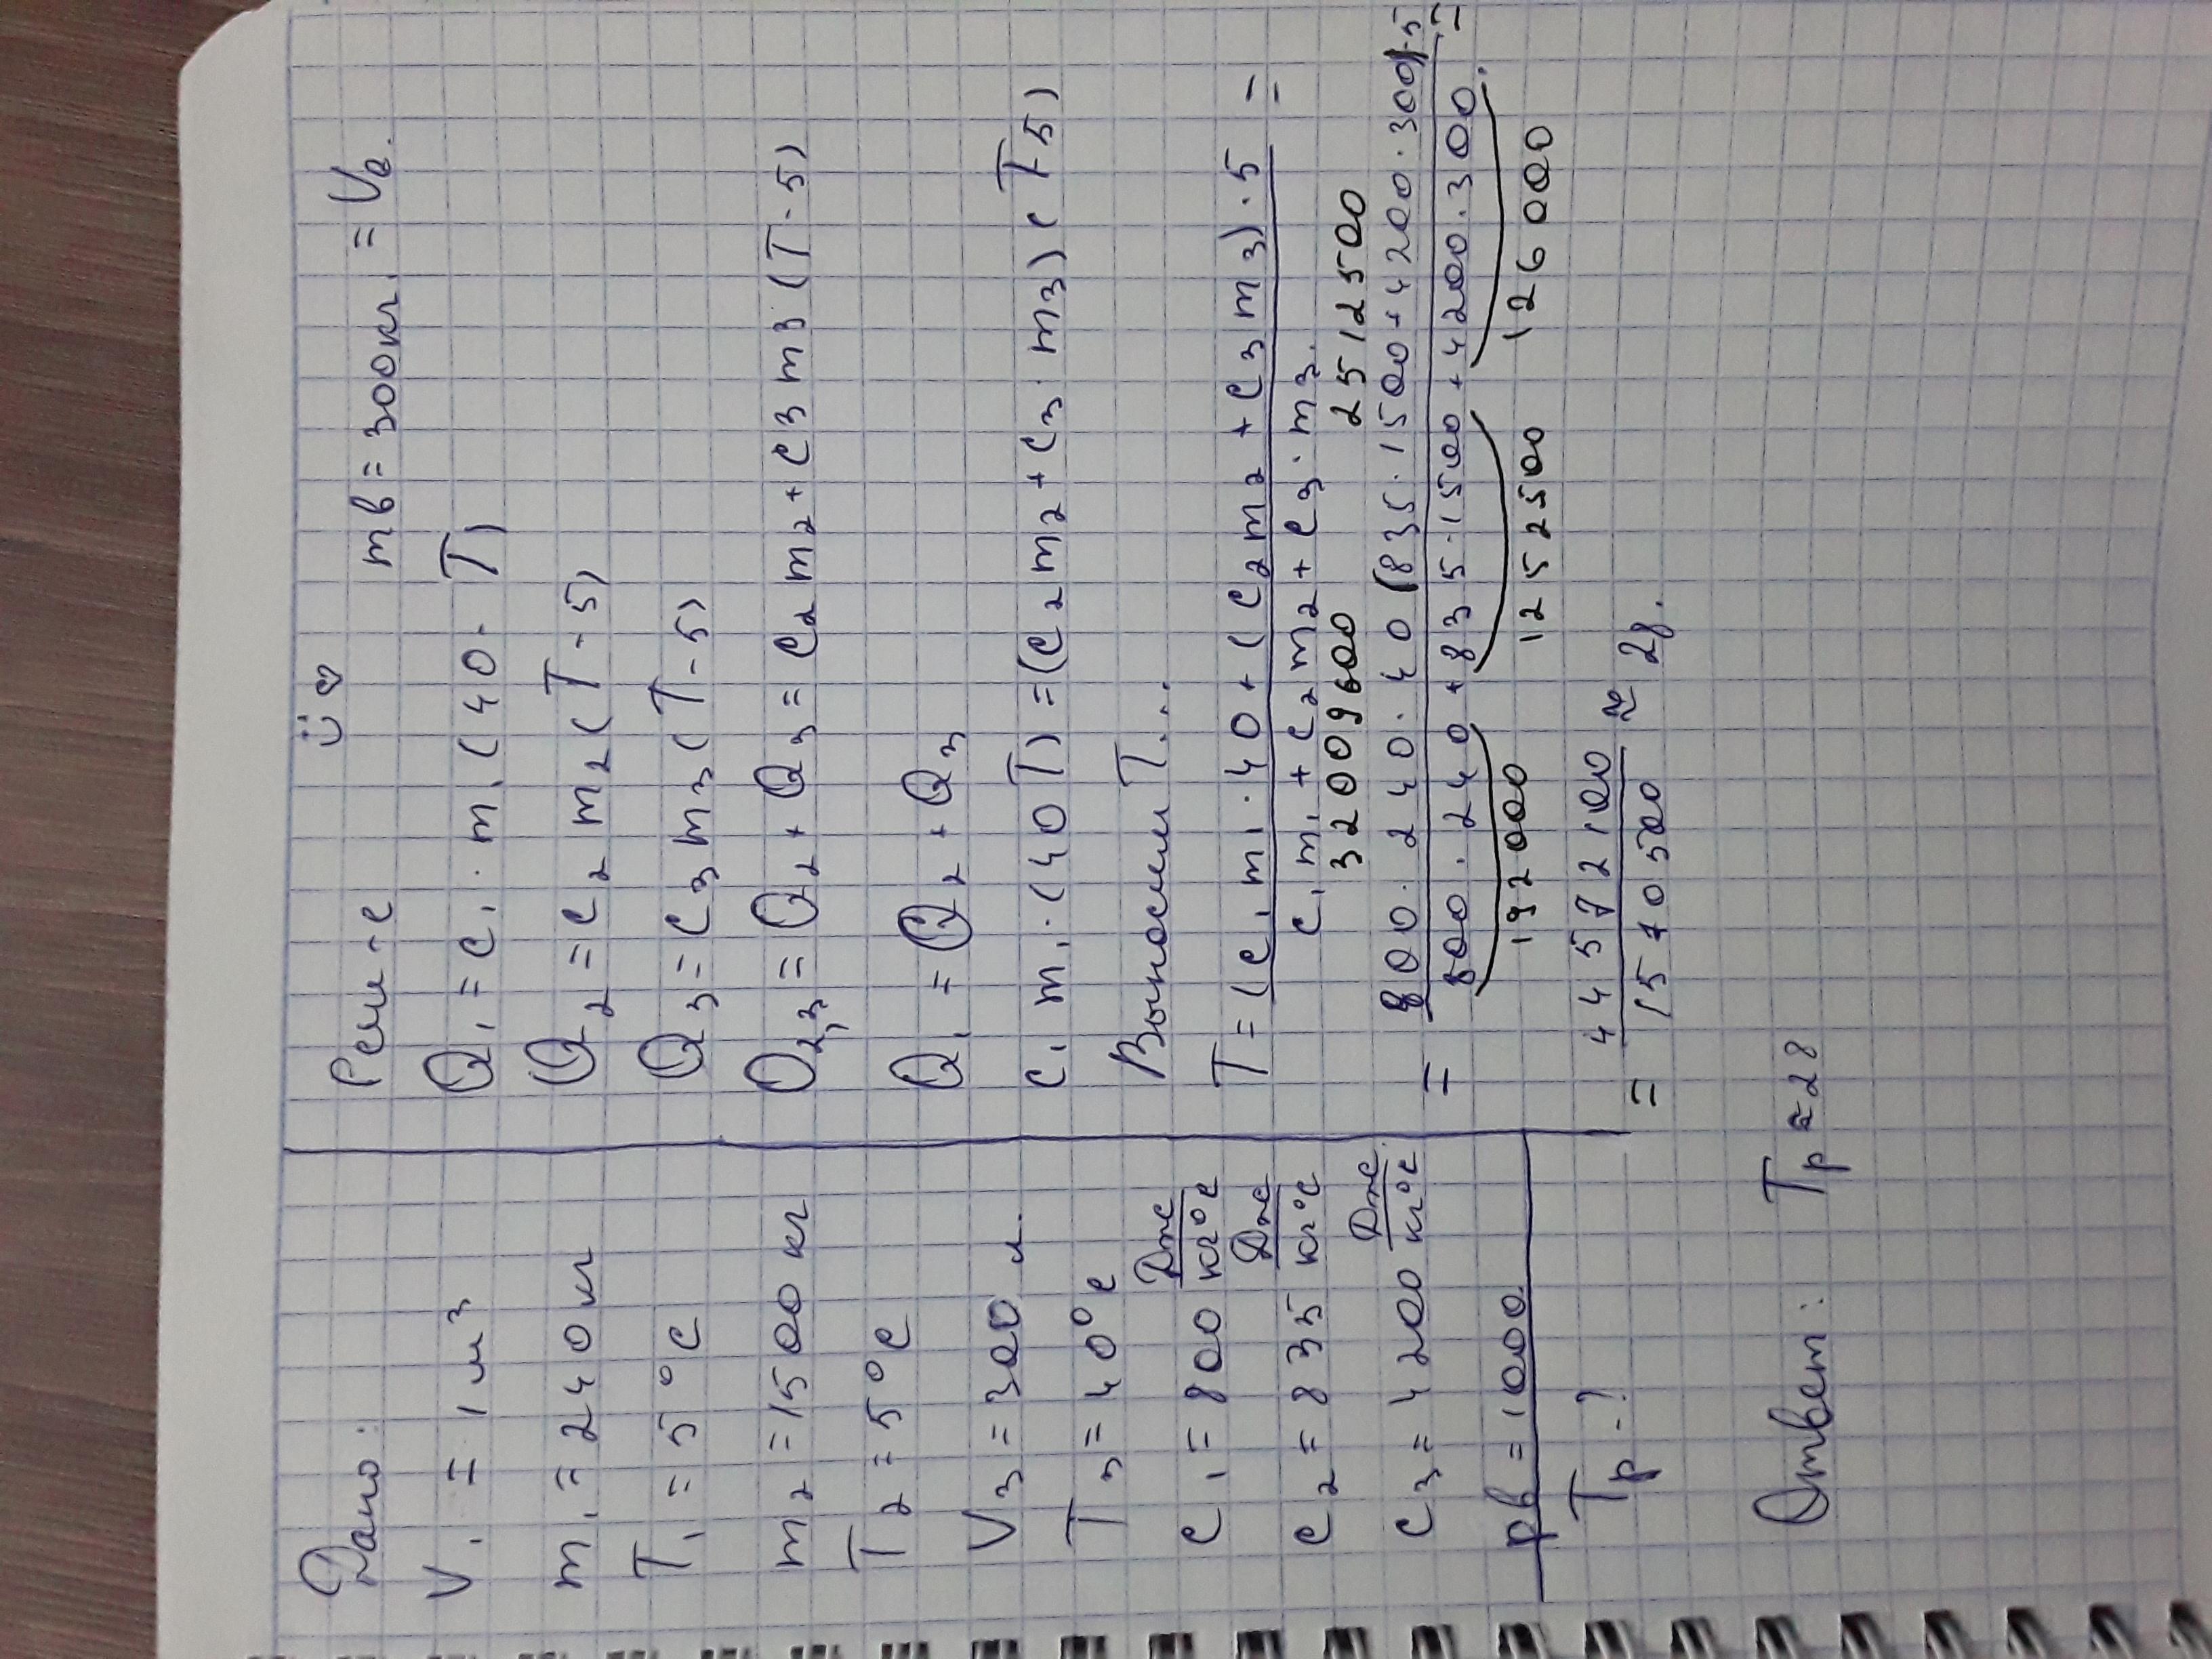 Дано:
V₁ = 1 м³
m₁ = 240 кг
T₁ = 5°C
m₂ = 1500 кг
T₂ = 5°C
V₃ = 300 л.
T₃ = 40°C
C₁ = 800 Дж/кг°C
C₂ = 835 Дж/кг°C
C₃ = 4200 Дж/кг°C
pв = 1000
Tр - ?
Реш-е
mв = 300кг. = Vв.
Q₁ = C₁ · m₁ (40 - T)
Q₂ = C₂ m₂ (T - 5)
Q₃ = C₃ m₃ (T - 5)
Q₂,₃ = Q₂ + Q₃ = C₂ m₂ + C3 m3 (T - 5)
Q₁ = Q₂ + Q₃
C₁ m₁ · (40 T) = (C₂ m₂ + C₃ · m₃) (T-5)
Выносим T...
T = (C₁ m₁ · 40 + (C₂ m₂ + C₃ m₃) · 5 =
C₁ m₁ + C₂ m₂ + C₃ · m₃.
32009600 2512500
= 800 · 240 · 40 (835 · 1500 + 4200 · 300)·5 =
800 · 240 + 835 · 1500 + 4200 · 300.
192000 1252500 126000
= 44572100 / 1570500 ≈ 28.
Ответ: Tр ≈ 28